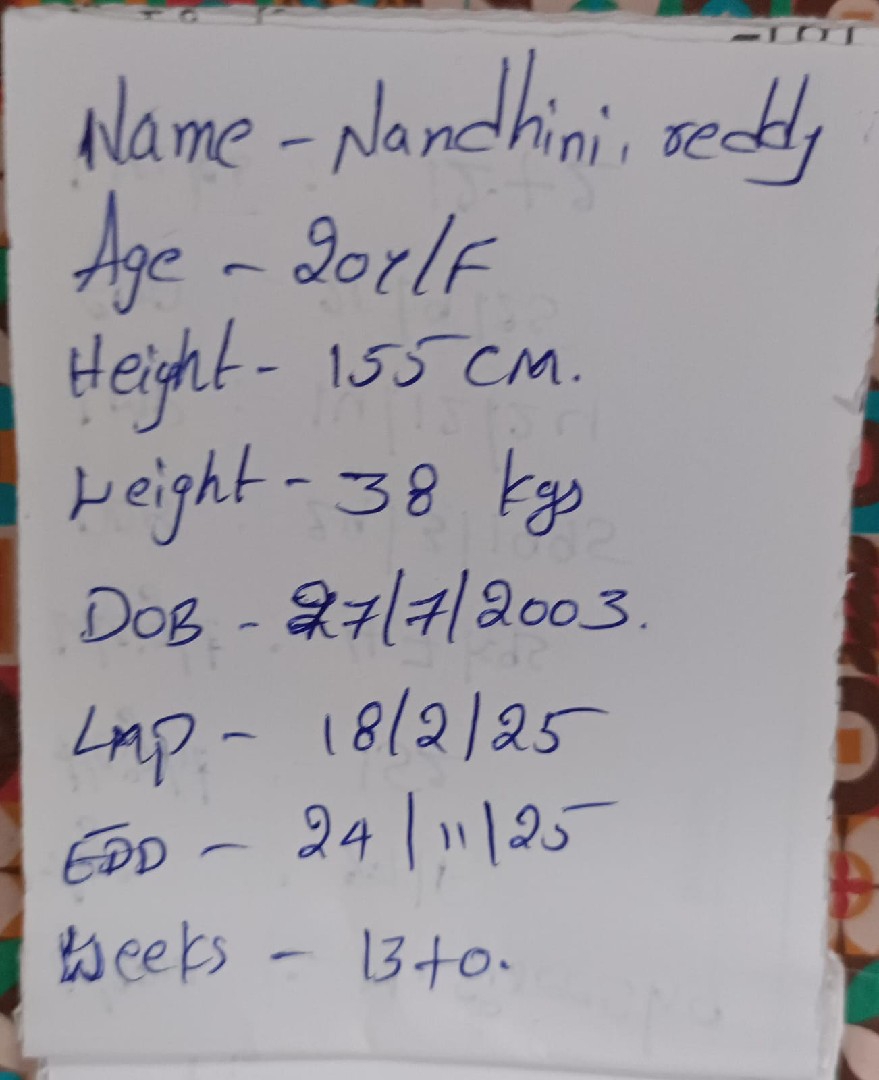 Name - Nandhini, reddy
Age - 20Y/F
Height - 155 CM.
Weight - 38 kgs
DOB - 27/7/2003.
LMP - 18/2/25
EDD - 24/11/25
Weeks - 13+0.